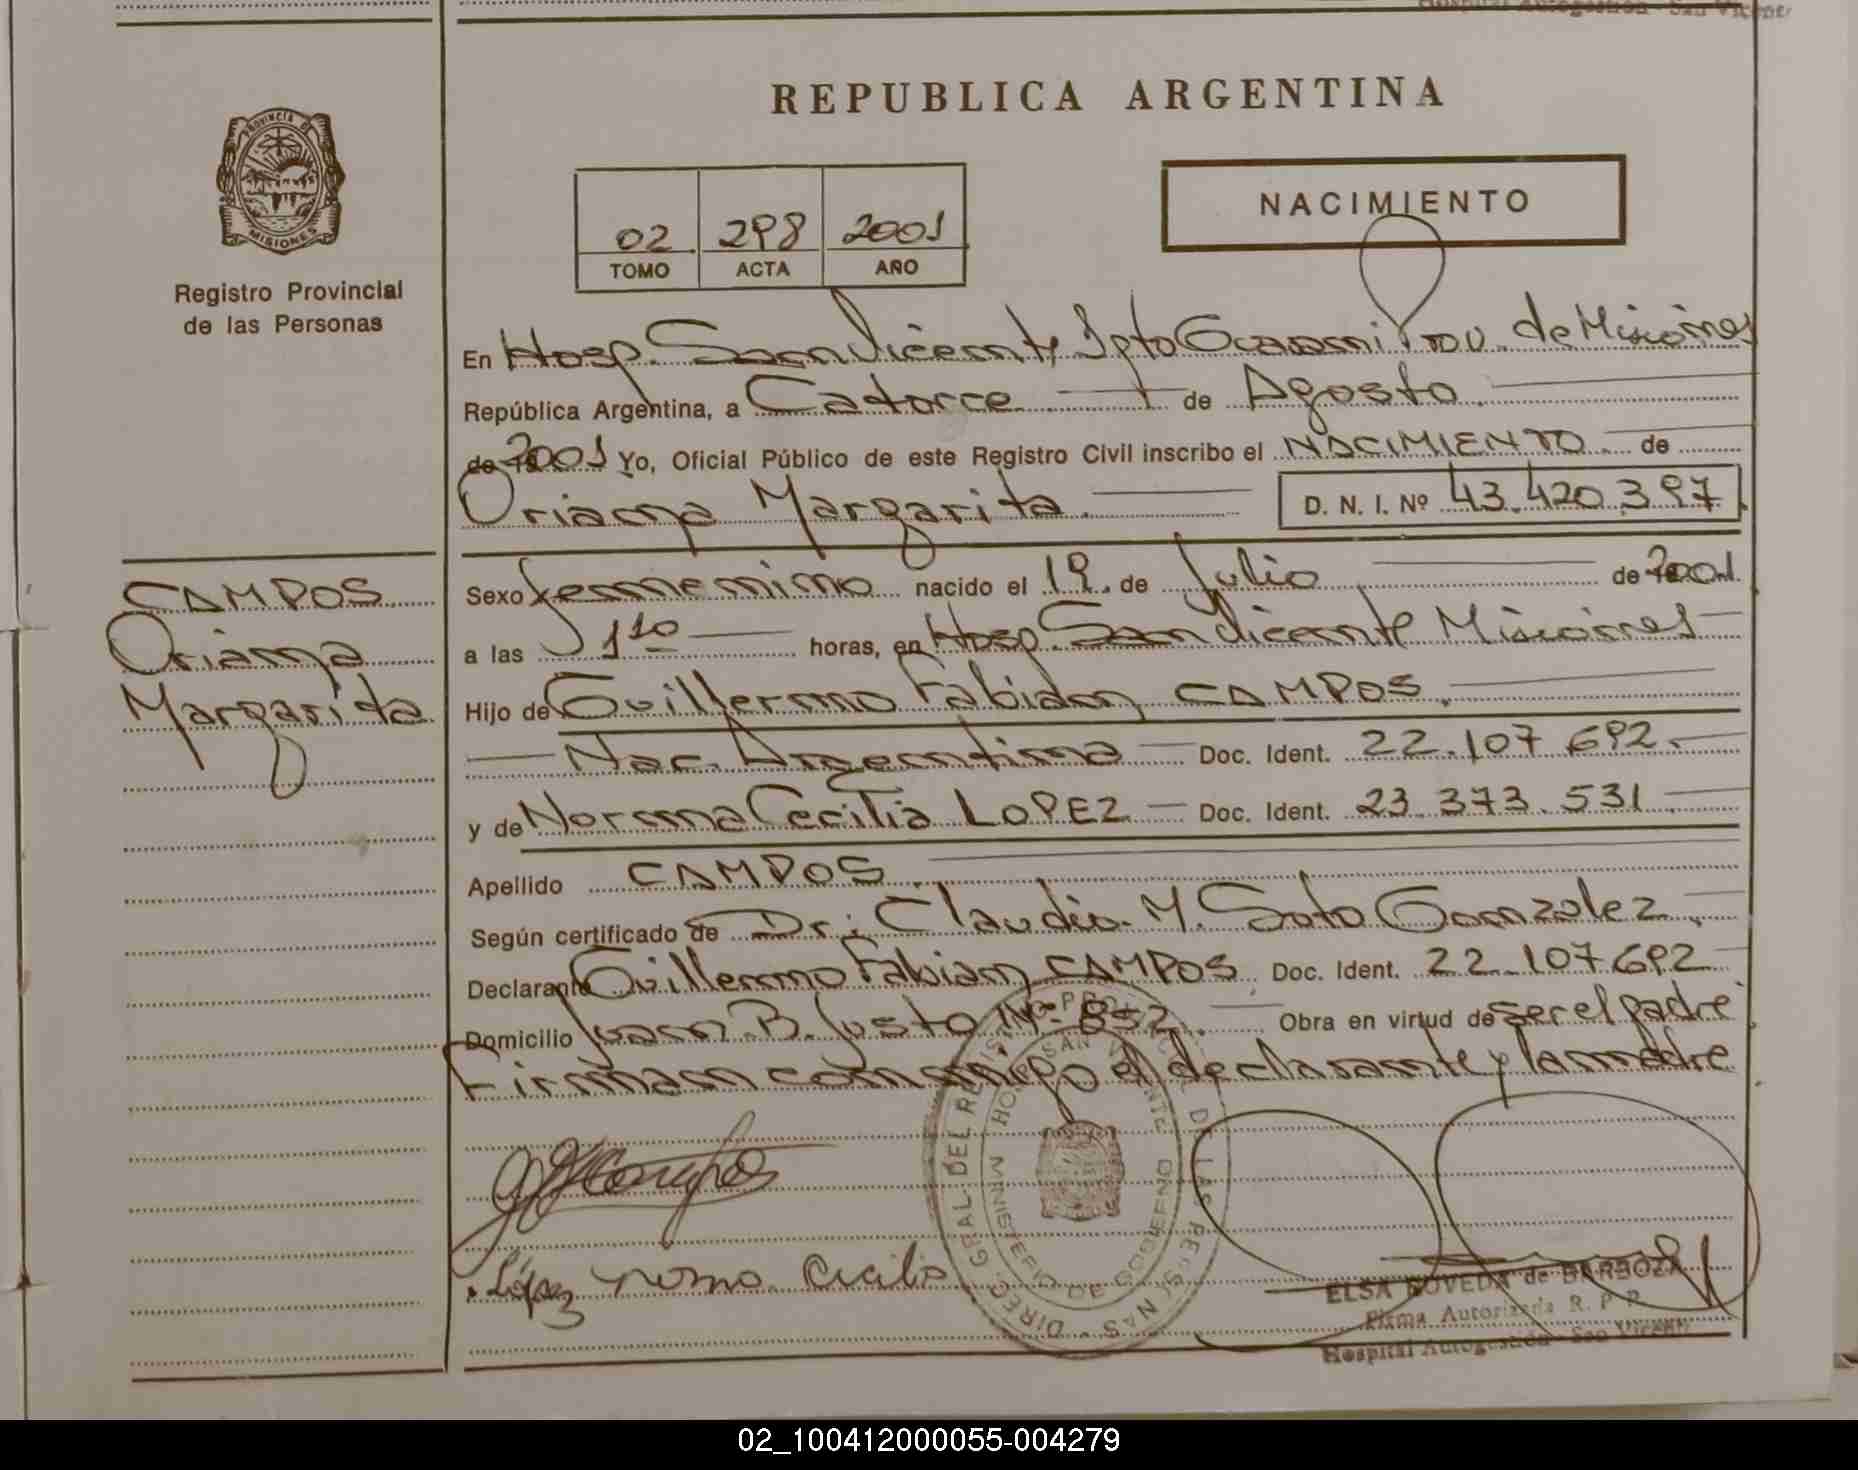 REPUBLICA ARGENTINA
PROVINCIA DE
MISIONES
Registro Provincial
de las Personas
02 298 2001
TOMO ACTA AÑO
NACIMIENTO
En Hosp. San Vicente Dpto Guarani Prov. de Misiones
República Argentina, a Catorce de Agosto
de 2001 Yo, Oficial Público de este Registro Civil inscribo el NACIMIENTO de
Oriana Margarita. D. N. I. Nº 43.420.397
CAMPOS
Oriana
Margarita
Sexo femenino nacido el 19 de Julio de 2001
a las 1 10 horas, en Hosp. San Vicente Misiones
Hijo de Guillermo Fabian CAMPOS.
Nac. Argentina Doc. Ident. 22.107.692.
y de Norma Cecilia LOPEZ Doc. Ident. 23.373.531
Apellido CAMPOS.
Según certificado de Dr. Claudio M. Soto Gonzalez.
Declarante Guillermo Fabian CAMPOS Doc. Ident. 22.107.692
Domicilio Juan B. Justo Nº 852. Obra en virtud de ser el padre
Firman conmigo el declarante y la madre
López Norma Cecilia
DIREC. GRAL. DEL REGIST. PROV. DE LAS PERSONAS
MINISTERIO DE GOBIERNO
HOSP. SAN VICENTE
ELSA POVEDA de BARBOZA
Firma Autorizada R. P. P.
Hospital Autogestión - San Vicente
02_100412000055-004279